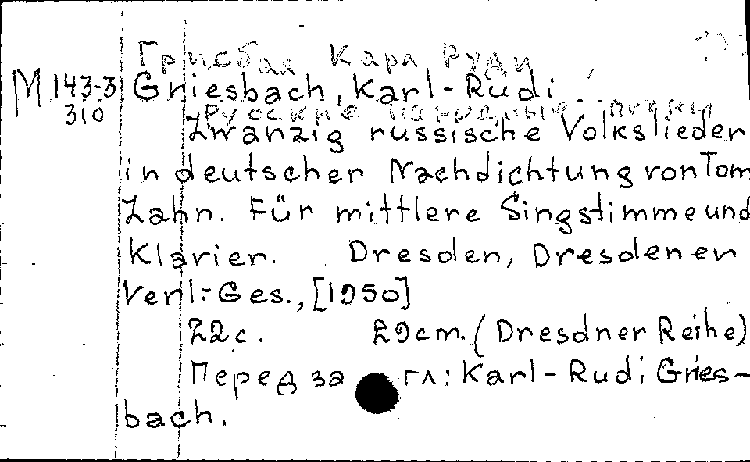 Грисбах Карл Руди
М 143-3 Griesbach, Karl-Rudi.
310 Русские народные песни
Zwanzig russische Volkslieder
in deutscher Nachdichtung von Tom
Zahn. Für mittlere Singstimme und
Klavier. Dresden, Dresdener
Verl.-Ges., [1950]
22 c. 29 cm. (Dresdner Reihe)
Перед загл: Karl-Rudi Gries-
bach.